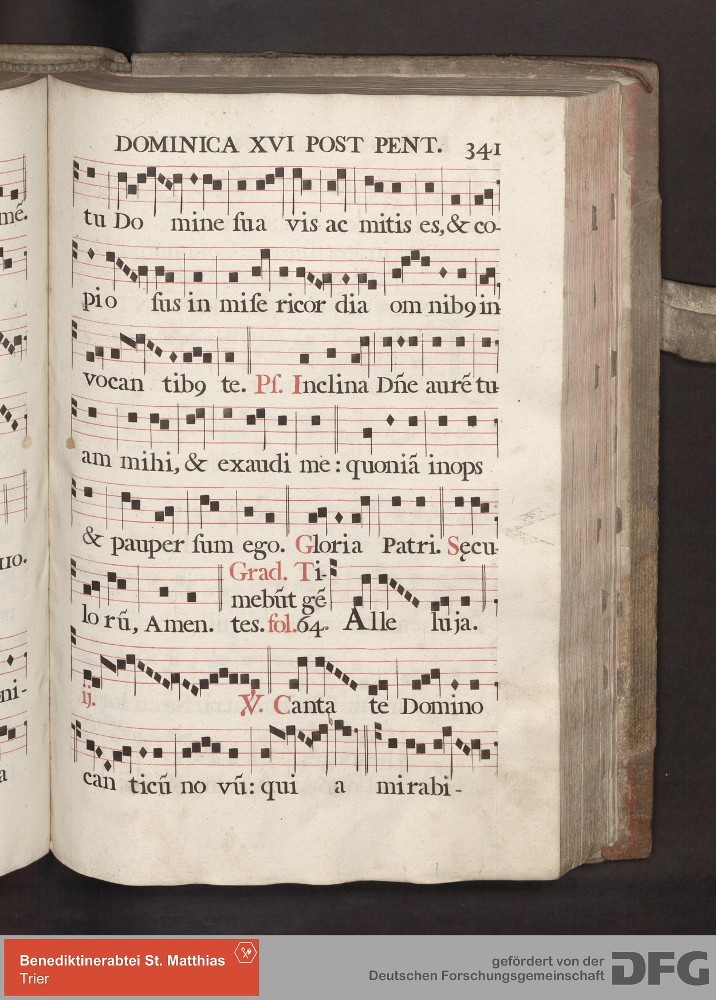 DOMINICA XVI POST PENT. 341
tu Do mine sua vis ac mitis es, & co-
pio sus in mise ricor dia om nib9 in-
vocan tib9 te. Ps. Inclina Dñe aurē tu-
am mihi, & exaudi me: quoniā inops
& pauper sum ego. Gloria Patri. Sęcu-
lo rū, Amen. Grad. Ti-
mebūt gē
tes. fol. 64. Alle luja.
ij. ℣. Canta te Domino
can ticū no vū: qui a mirabi-
mé.
no.
ni-
a
Benediktinerabtei St. Matthias
Trier
gefördert von der
Deutschen Forschungsgemeinschaft
DFG